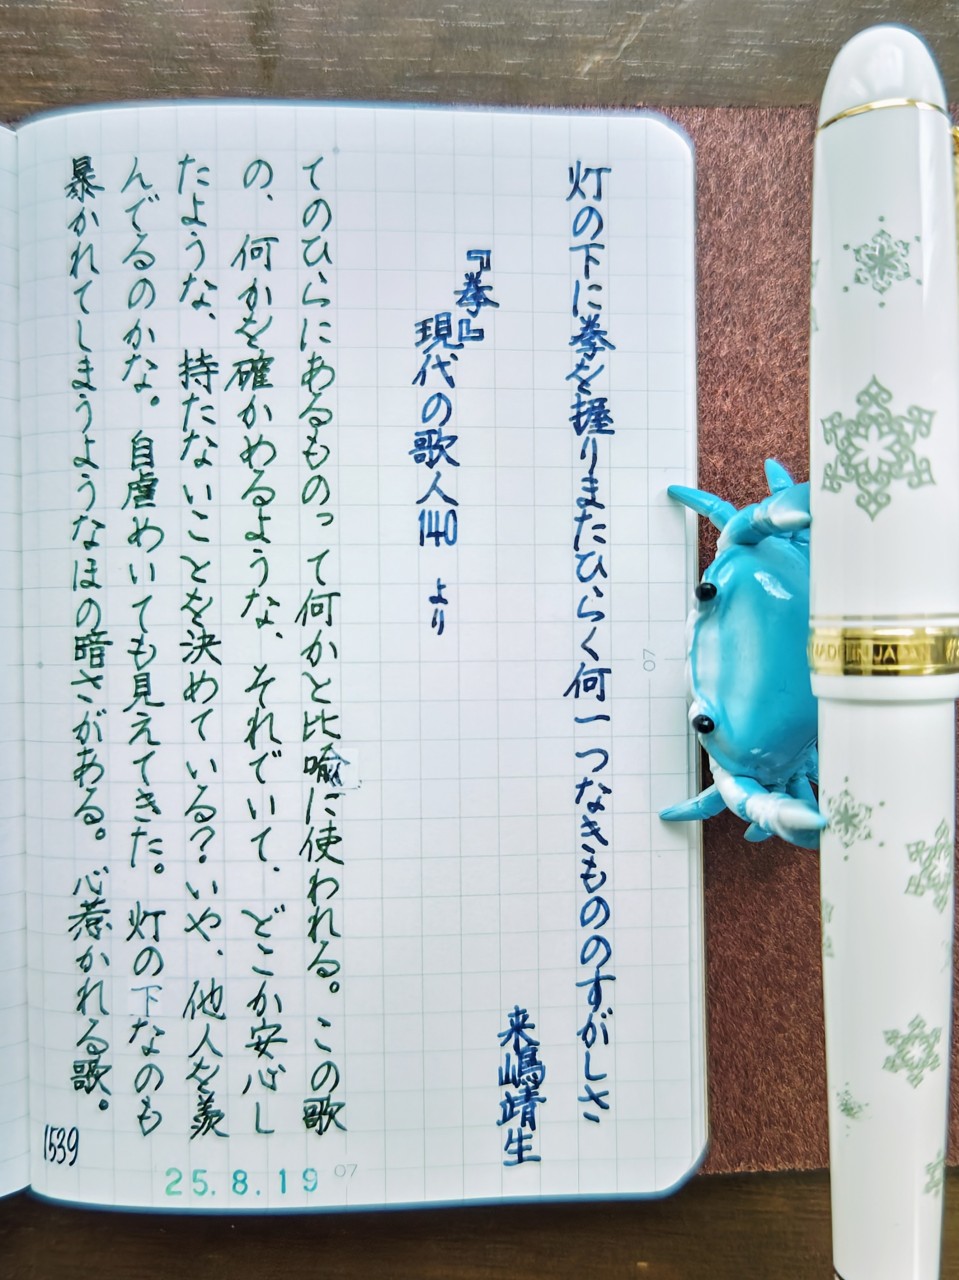 灯の下に拳を握りまたひらく何一つなきもののすがしさ
来嶋靖生
『拳』
現代の歌人140 より
てのひらにあるものって何かと比喩に使われる。この歌
の、何かを確かめるような、それでいて、どこか安心し
たような、持たないことを決めている?いや、他人を羨
んでるのかな。自虐めいても見えてきた。灯の下なのも
暴かれてしまうようなほの暗さがある。心惹かれる歌。
1539
25.8.19
07
07
MADE IN JAPAN